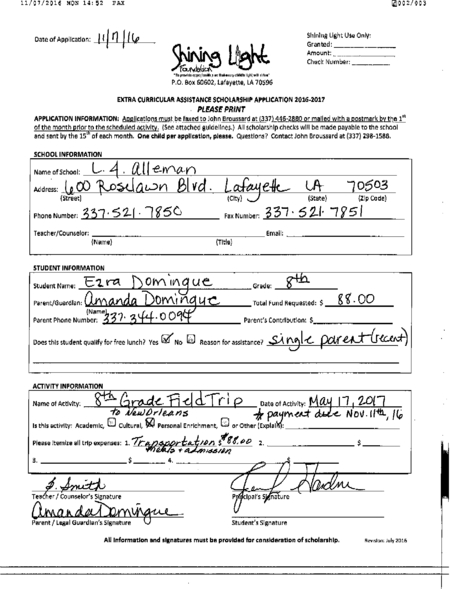 11/07/2016 MON 14:52 FAX 002/003
Date of Application: 11/7/16
Shining Light
Foundation
P.O. Box 60602, Lafayette, LA 70596
Shining Light Use Only:
Granted:
Amount:
Check Number:
EXTRA CURRICULAR ASSISTANCE SCHOLARSHIP APPLICATION 2016-2017
PLEASE PRINT
APPLICATION INFORMATION: Applications must be faxed to John Broussard at (337) 446-2880 or mailed with a postmark by the 1st
of the month prior to the scheduled activity. (See attached guidelines.) All scholarship checks will be made payable to the school
and sent by the 15th of each month. One child per application, please. Questions? Contact John Broussard at (337) 298-1588.
SCHOOL INFORMATION
Name of School: L. J. Alleman
Address: 600 Roselawn Blvd. Lafayette LA 70503
(Street) (City) (State) (Zip Code)
Phone Number: 337.521.7850 Fax Number: 337.521.7851
Teacher/Counselor: Email:
(Name) (Title)
STUDENT INFORMATION
Student Name: Ezra Domingue Grade: 8th
Parent/Guardian: Amanda Domingue Total Fund Requested: $ 88.00
(Name)
Parent Phone Number: 337.344.0094 Parent's Contribution: $
Does this student qualify for free lunch? Yes No Reason for assistance? Single parent (recent)
ACTIVITY INFORMATION
Name of Activity: 8th Grade Field Trip Date of Activity: May 17, 2017
to New Orleans * payment due Nov. 11th, 16
Is this activity: Academic, Cultural, Personal Enrichment, or Other (Explain):
Please itemize all trip expenses: 1. Transportation $ 88.00 2. $
meals + admission
3. $ 4. $
J. Smith
Teacher / Counselor's Signature Principal's Signature
Amanda Domingue
Parent / Legal Guardian's Signature Student's Signature
All information and signatures must be provided for consideration of scholarship. Revision: July 2016